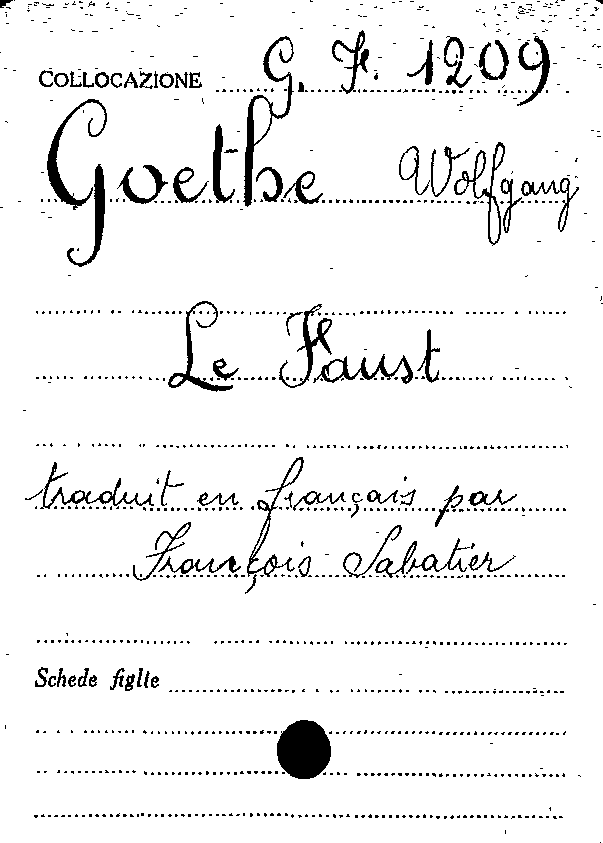 COLLOCAZIONE G. F. 1209
Goethe Wolfgang
Le Faust
traduit en français par
François Sabatier
Schede figlie